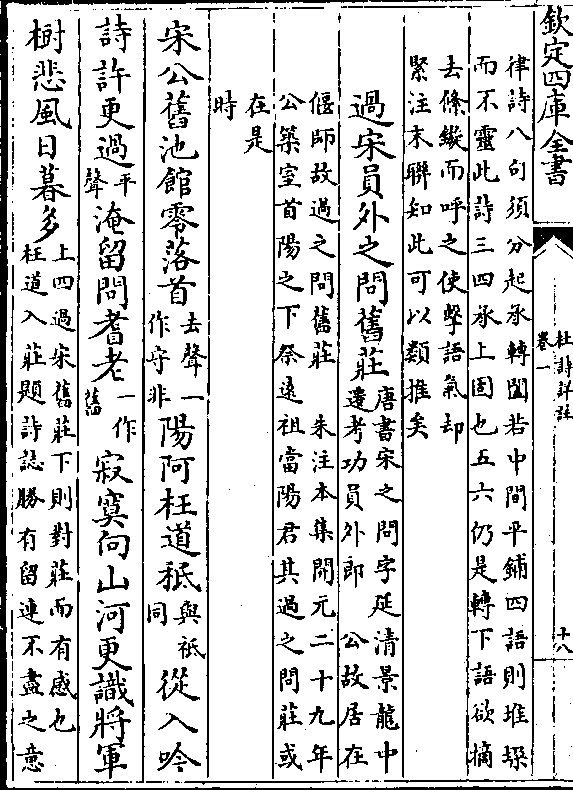 欽定四庫全書
杜詩詳註
卷一
十八
律詩八句須分起承轉闔若中間平鋪四語則堆垜
而不靈此詩三四承上固也五六仍是轉下語欲摘
去絛鏇而呼之使擊語氣却
緊注末聯知此可以類推矣
過宋員外之問舊莊唐書宋之問字延清景龍中遷考功員外郎 公故居在
偃師故過之問舊莊 朱注本集開元二十九年
公築室首陽之下祭遠祖當陽君其過之問莊或
在是
時
宋公舊池館零落首去聲一作守非陽阿枉道秪與祇同從入吟
詩許更過平聲淹留問耆老一作舊寂寞向山河更識將軍
樹悲風日暮多上四過宋舊莊下則對莊而有感也枉道入莊題詩誌勝有留連不盡之意